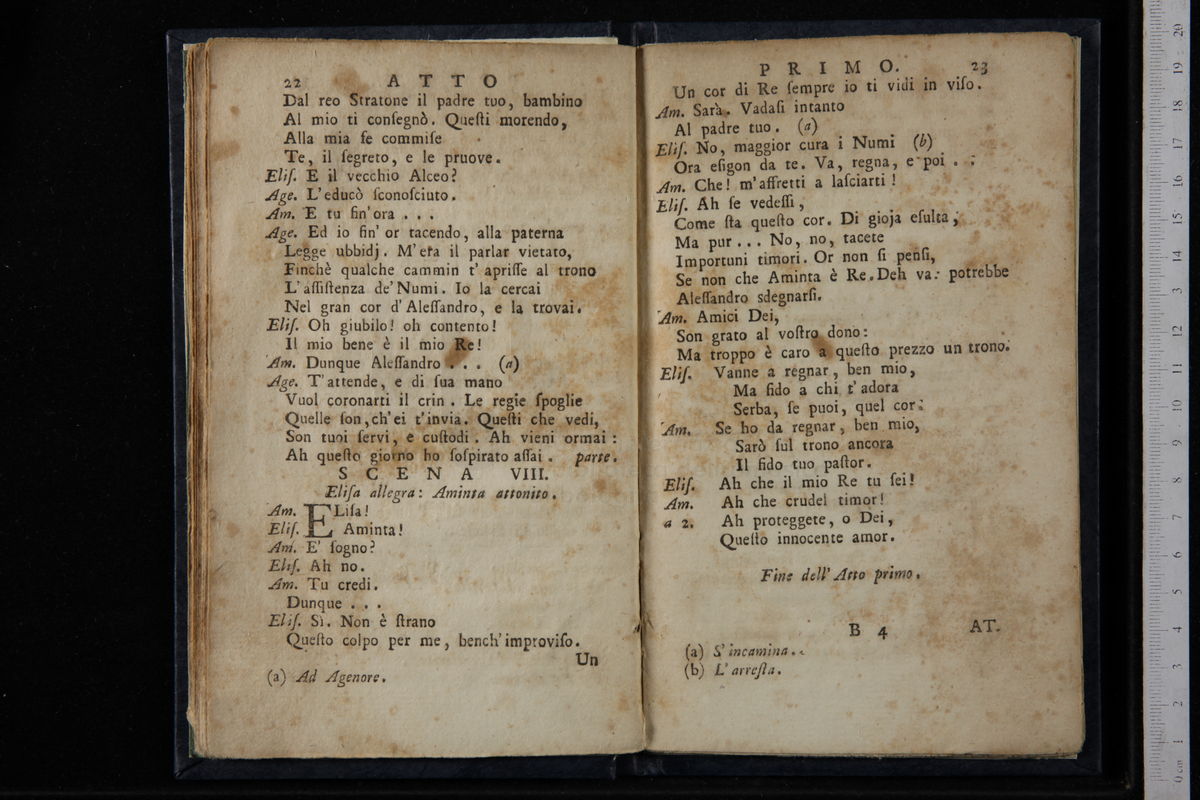 22 ATTO
Dal reo Stratone il padre tuo, bambino
Al mio ti conſegnò. Queſti morendo,
Alla mia fe commiſe
Te, il ſegreto, e le pruove.
Eliſ. E il vecchio Alceo?
Age. L'educò ſconoſciuto.
Am. E tu fin'ora . . .
Age. Ed io fin' or tacendo, alla paterna
Legge ubbidj. M'era il parlar vietato,
Finchè qualche cammin t' apriſſe al trono
L'aſſiſtenza de'Numi. Io la cercai
Nel gran cor d'Aleſſandro, e la trovai.
Eliſ. Oh giubilo! oh contento!
Il mio bene è il mio Re!
Am. Dunque Aleſſandro . . . (a)
Age. T'attende, e di ſua mano
Vuol coronarti il crin. Le regie ſpoglie
Quelle ſon, ch'ei t'invia. Queſti che vedi,
Son tuoi ſervi, e cuſtodi. Ah vieni ormai:
Ah queſto giorno ho ſoſpirato aſſai. parte.
SCENA VIII.
Eliſa allegra: Aminta attonito.
Am. ELiſa!
Eliſ. Aminta!
Am. E' ſogno?
Eliſ. Ah no.
Am. Tu credi.
Dunque . . .
Eliſ. Sì. Non è ſtrano
Queſto colpo per me, bench'improviſo.
Un
(a) Ad Agenore.
PRIMO. 23
Un cor di Re ſempre io ti vidi in viſo.
Am. Sarà. Vadaſi intanto
Al padre tuo. (a)
Eliſ. No, maggior cura i Numi (b)
Ora eſigon da te. Va, regna, e poi . .
Am. Che! m'affretti a laſciarti!
Eliſ. Ah ſe vedeſſi,
Come ſta queſto cor. Di gioja eſulta;
Ma pur... No, no, tacete
Importuni timori. Or non ſi penſi,
Se non che Aminta è Re. Deh va: potrebbe
Aleſſandro sdegnarſi.
Am. Amici Dei,
Son grato al voſtro dono:
Ma troppo è caro a queſto prezzo un trono.
Eliſ. Vanne a regnar, ben mio,
Ma fido a chi t'adora
Serba, ſe puoi, quel cor.
Am. Se ho da regnar, ben mio,
Sarò ſul trono ancora
Il fido tuo paſtor.
Eliſ. Ah che il mio Re tu ſei!
Am. Ah che crudel timor!
a 2. Ah proteggete, o Dei,
Queſto innocente amor.
Fine dell' Atto primo.
B 4 AT.
(a) S'incamina.
(b) L'arreſta.
0 cm 1 2 3 4 5 6 7 8 9 10 11 12 13 14 15 16 17 18 19 20